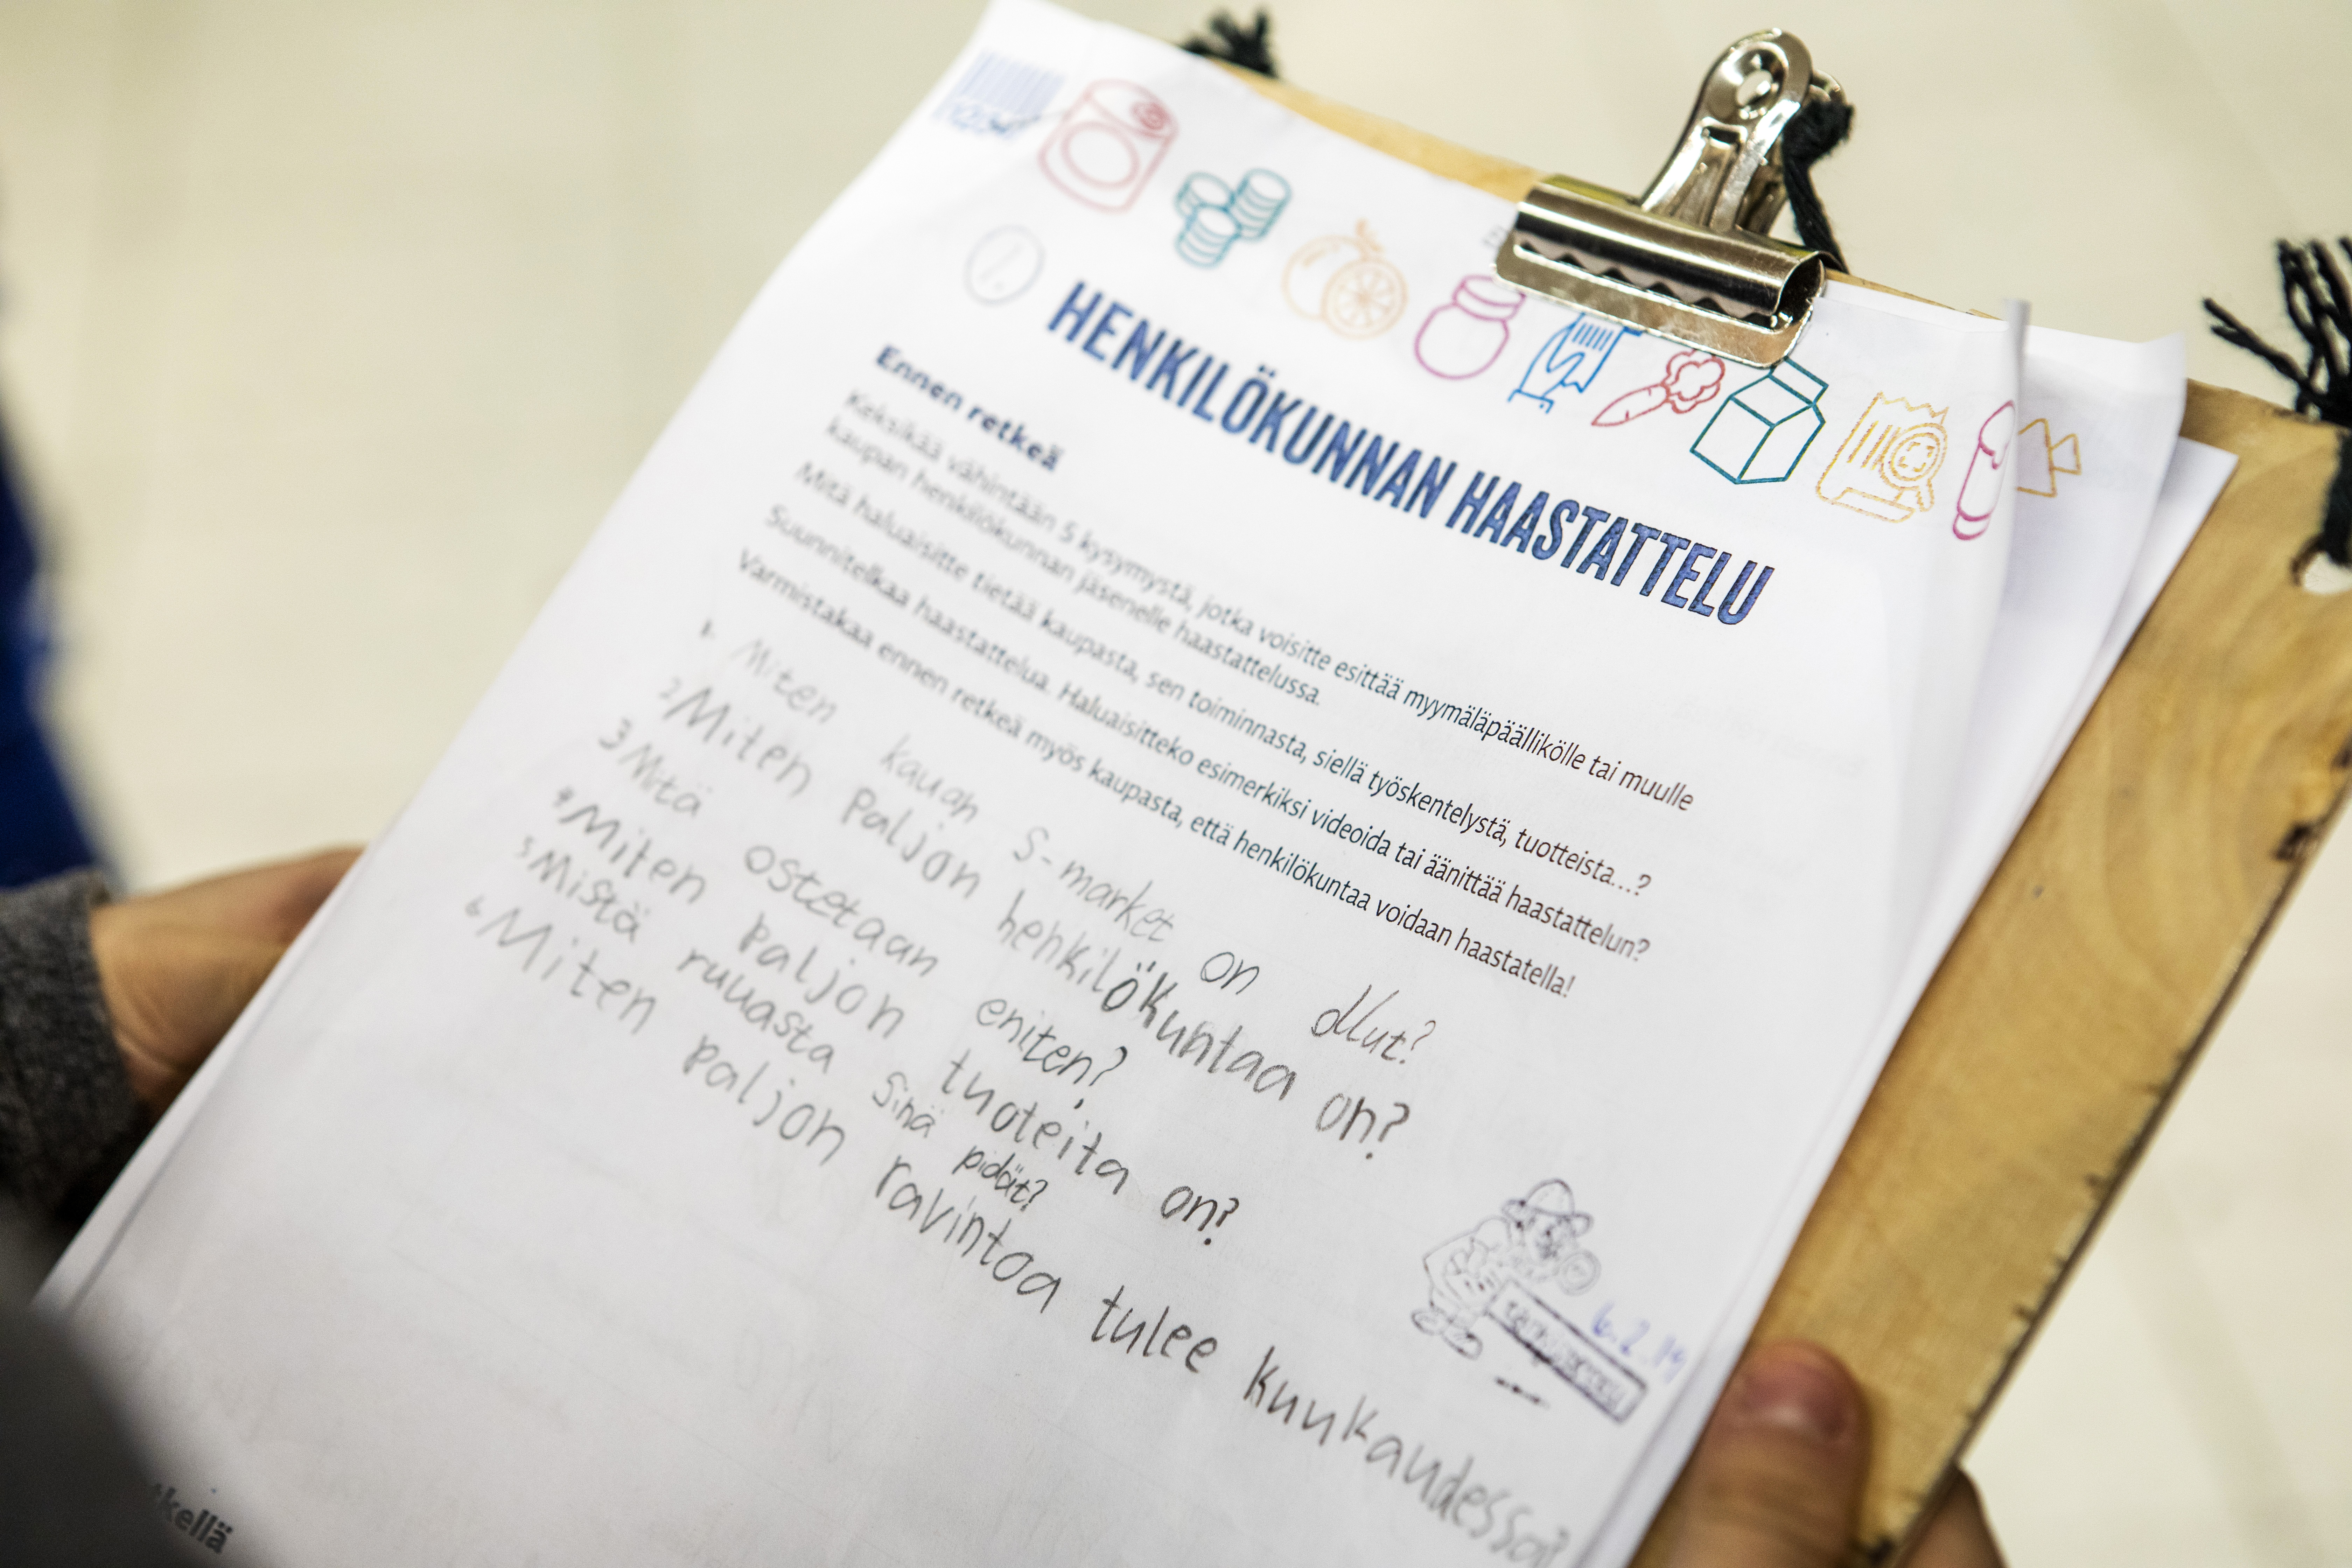 HENKILÖKUNNAN HAASTATTELU
Ennen retkeä
Keksikää vähintään 5 kysymystä, jotka voisitte esittää myymäläpäällikölle tai muulle
kaupan henkilökunnan jäsenelle haastattelussa.
Mitä haluaisitte tietää kaupasta, sen toiminnasta, siellä työskentelystä, tuotteista...?
Suunnitelkaa haastattelua. Haluaisitteko esimerkiksi videoida tai äänittää haastattelun?
Varmistakaa ennen retkeä myös kaupasta, että henkilökuntaa voidaan haastatella!
1. Miten kauan S-market on ollut?
2 Miten Paljon henkilökuntaa on?
3 Mitä ostetaan eniten?
4 Miten paljon tuoteita on?
5 Mistä ruuasta sinä pidät?
6 Miten paljon ravintoa tulee kuukaudessa?
6.2.19